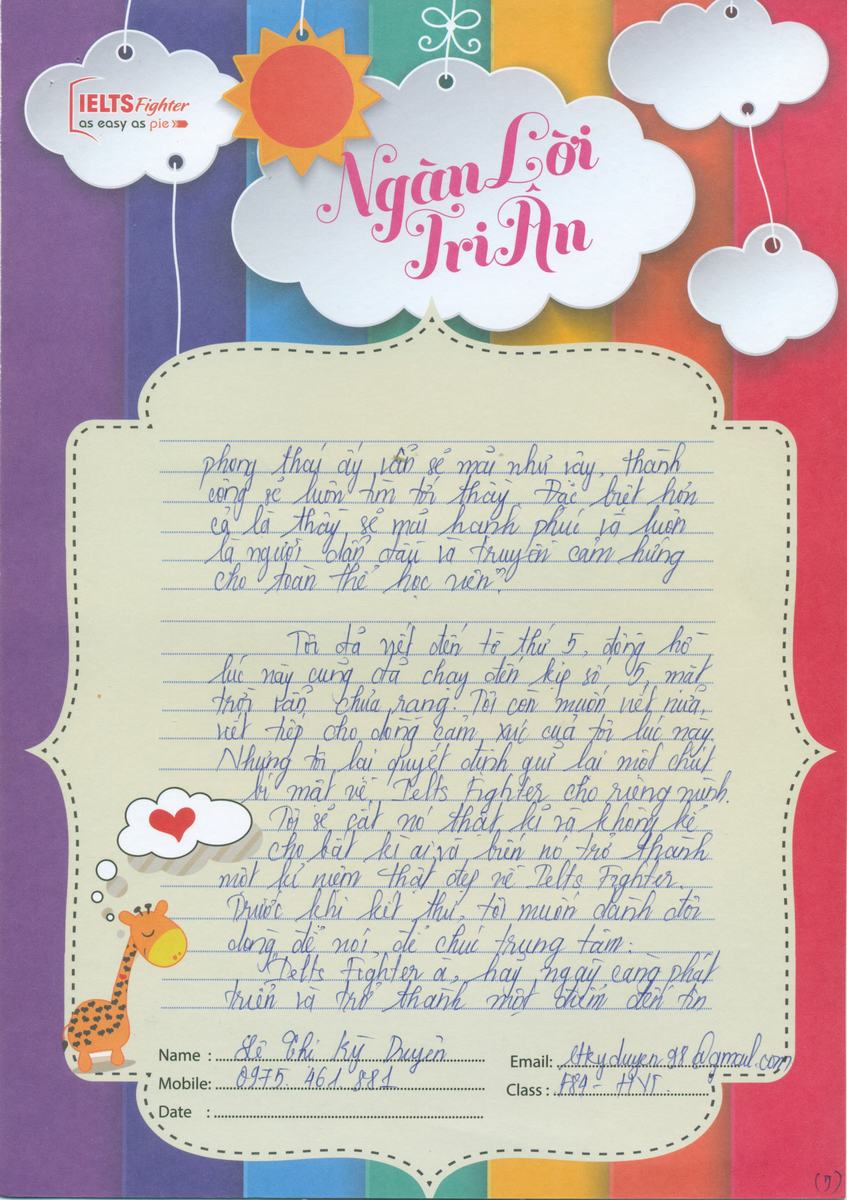 IELTS Fighter
as easy as pie
Ngàn Lời
Tri Ân
phong thái ấy vẫn sẽ mãi như vậy, thành
công sẽ luôn tìm tới thầy. Đặc biệt hơn
cả là thầy sẽ mãi hạnh phúc và luôn
là người dẫn đầu và truyền cảm hứng
cho toàn thể học viên"
Tôi đã viết đến tờ thứ 5, đồng hồ
lúc này cũng đã chạy đến kịp số 5, mặt
trời vẫn chưa rạng. Tôi còn muốn viết nữa,
viết tiếp cho dòng cảm xúc của tôi lúc này.
Nhưng tôi lại quyết định giữ lại một chút
bí mật về Ielts Fighter cho riêng mình.
Tôi sẽ cất nó thật kĩ và không kể
cho bất kì ai và biến nó trở thành
một kỉ niệm thật đẹp về Ielts Fighter.
Trước khi kết thư, tôi muốn dành đôi
dòng để nói, để chúc trung tâm:
"Ielts Fighter à, hãy ngày càng phát
triển và trở thành một điểm đến tin
Name : Lê Thị Kỳ Duyên
Email: ltkyduyen98@gmail.com
Mobile: 0975 461 881
Class : F89 - HVT
Date :
(7)